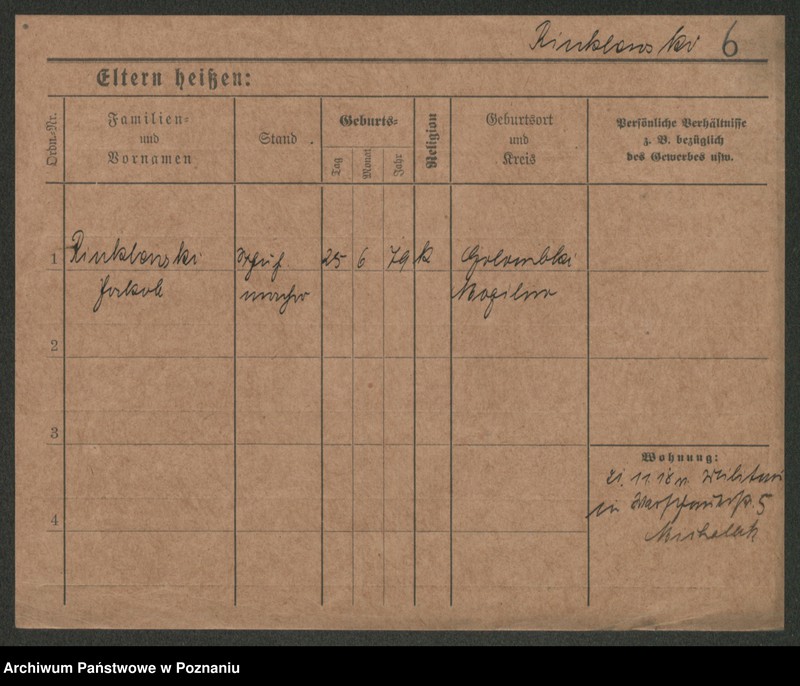 Rinklewski 6
Eltern heißen:
Ordn.-Nr.
Familien-
und
Vornamen
Stand
Geburts-
Tag
Monat
Jahr
Religion
Geburtsort
und
Kreis
Persönliche Verhältnisse
z. B. bezüglich
des Gewerbes usw.
1 Rinklewski Schuh- 25 6 79 k Golombki
Jakob macher Mogilno
2
3
Wohnung:
21.11.18 v. Militär
in 5
4
Michalak
Archiwum Państwowe w Poznaniu